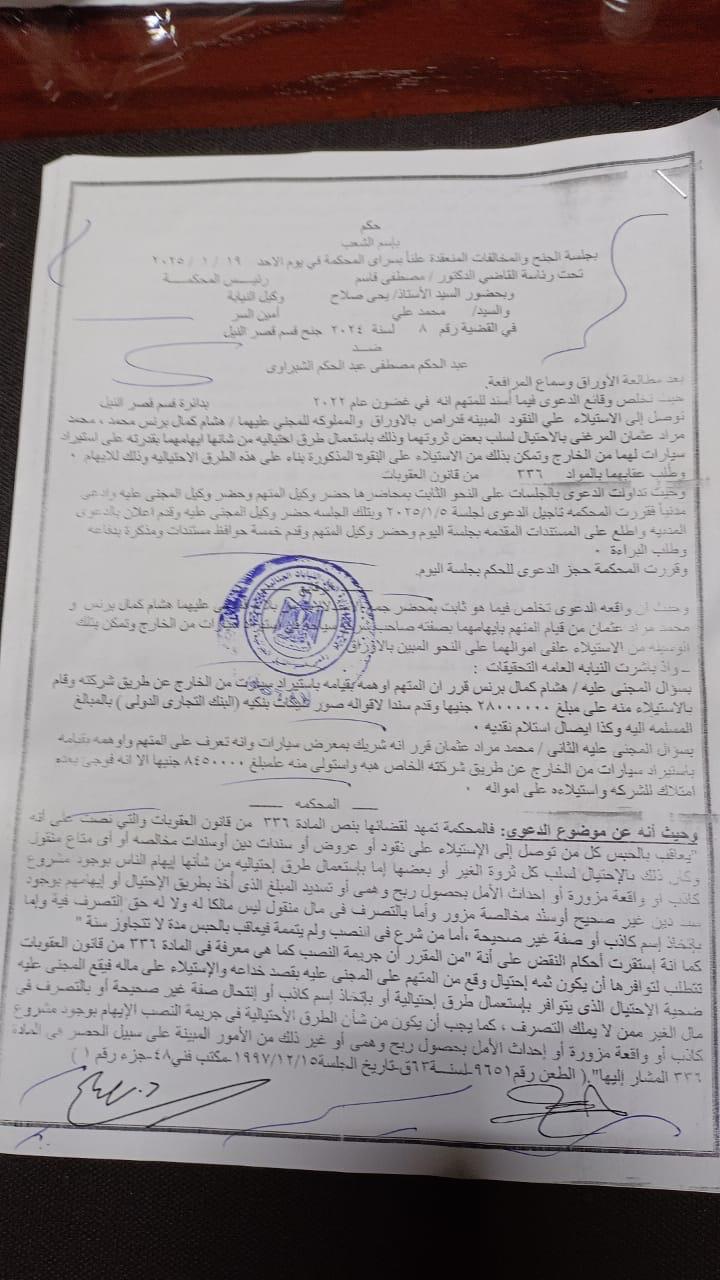 حكم
بإسم الشعب
بجلسة الجنح والمخالفات المنعقدة علناً بسراى المحكمة في يوم الاحد ١٩ / ١ / ٢٠٢٥
تحت رئاسة القاضي الدكتور / مصطفى قاسم رئيس المحكمة
وبحضور السيد الأستاذ/ يحى صلاح وكيل النيابة
والسيد/ محمد علي أمين السر
في القضية رقم ٨ لسنة ٢٠٢٤ جنح قسم قصر النيل
ضد
عبد الحكم مصطفى عبد الحكم الشبراوى
بعد مطالعة الأوراق وسماع المرافعة.
حيث تخلص وقائع الدعوى فيما أسند للمتهم انه في غضون عام ٢٠٢٢ بدائرة قسم قصر النيل
توصل إلى الاستيلاء على النقود المبينه قدراص بالاوراق والمملوكه للمجني عليهما / هشام كمال برنس محمد ، محمد
مراد عثمان المرغنى بالاحتيال لسلب بعض ثروتهما وذلك باستعمال طرق احتياليه من شانها ايهامهما بقدرته على استيراد
سيارات لهما من الخارج وتمكن بذلك من الاستيلاء على النقود المذكورة بناء على هذه الطرق الاحتياليه وذلك للايهام .
وطلب عقابهما بالمواد ٣٣٦ من قانون العقوبات
وحيث تداولت الدعوى بالجلسات على النحو الثابت بمحاضرها حضر وكيل المتهم وحضر وكيل المجنى عليه وادعى
مدنياً فقررت المحكمه تاجيل الدعوى لجلسة ٢٠٢٥/١/٥ وبتلك الجلسه حضر وكيل المجنى عليه وقدم اعلان بالدعوى
المدنيه واطلع على المستندات المقدمه بجلسة اليوم وحضر وكيل المتهم وقدم خمسة حوافظ مستندات ومذكرة بدفاعه
وطلب البراءة .
وقررت المحكمة حجز الدعوى للحكم بجلسة اليوم.
وحيث ان واقعه الدعوى تخلص فيما هو ثابت بمحضر عليهما هشام كمال برنس و
محمد مراد عثمان من قيام المتهم بايهامهما بصفته صاحب من الخارج وتمكن بتلك
الوسيله من الاستيلاء على اموالهما على النحو المبين بالاوراق
ـ واذ باشرت النيابه العامه التحقيقات :
بسؤال المجنى عليه / هشام كمال برنس قرر ان المتهم اوهمه بقيامه باستيراد سيارت من الخارج عن طريق شركته وقام
بالاستيلاء منه على مبلغ ٢٨٠٠٠٠٠٠ جنيها وقدم سندا لاقواله صور شيكات بنكيه (البنك التجارى الدولى ) بالمبالغ
المسلمه اليه وكذا ايصال استلام نقديه .
بسؤال المجنى عليه الثانى / محمد مراد عثمان قرر انه شريك بمعرض سيارات وانه تعرف على المتهم واوهمه بقيامه
باستيراد سيارات من الخارج عن طريق شركته الخاص هبه واستولى منه علمبلغ ٨٤٥٠٠٠٠ جنيها الا انه فوجئ بعده
امتلاك للشركه واستيلاءه على امواله .
ــــ المحكمه ــــ
وحيث أنه عن موضوع الدعوى: فالمحكمة تمهد لقضائها بنص المادة ٣٣٦ من قانون العقوبات والتي نصت على أنه
"يعاقب بالحبس كل من توصل إلى الإستيلاء على نقود أو عروض أو سندات دين أوسندات مخالصه أو أى متاع منقول
وكان ذلك بالإحتيال لسلب كل ثروة الغير أو بعضها إما بإستعمال طرق إحتياليه من شأنها إيهام الناس بوجود مشروع
كاذب أو واقعة مزورة أو إحداث الأمل بحصول ربح وهمى أو تسديد المبلغ الذى أخذ بطريق الإحتيال أو إيهامهم بوجود
سند دين غير صحيح أوسند مخالصة مزور وأما بالتصرف فى مال منقول ليس مالكا له ولا له حق التصرف فية وإما
بإتخاذ إسم كاذب أو صفة غير صحيحة ،أما من شرع فى النصب ولم يتممة فيعاقب بالحبس مدة لا تتجاوز سنة "
كما انة إستقرت أحكام النقض على أنة "من المقرر أن جريمة النصب كما هى معرفة فى المادة ٣٣٦ من قانون العقوبات
تتطلب لتوافرها أن يكون ثمه إحتيال وقع من المتهم على المجنى عليه بقصد خداعه والإستيلاء على ماله فيقع المجنى عليه
ضحية الإحتيال الذى يتوافر بإستعمال طرق إحتيالية أو بإتخاذ إسم كاذب أو إنتحال صفة غير صحيحة أو بالتصرف فى
مال الغير ممن لا يملك التصرف ، كما يجب أن يكون من شأن الطرق الأحتيالية فى جريمة النصب الإيهام بوجود مشروع
كاذب أو واقعة مزورة أو إحداث الأمل بحصول ربح وهمى أو غير ذلك من الأمور المبينة على سبيل الحصر فى المادة
٣٣٦ المشار إليها".( الطعن رقم٩٦٥١-لسنـــة٦٣ق-تاريخ الجلسة١٩٩٧/١٢/١٥-مكتب فني٤٨-جزء رقم ١ )